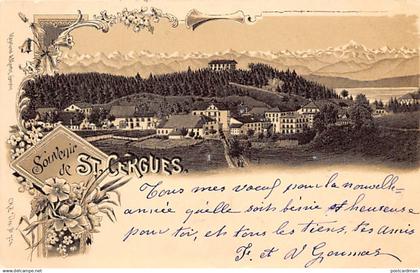 Souvenir
de
ST. CERGUES.
Tous mes vœux pour la nouvelle
année qu'elle soit bénie et heureuse
pour toi, et tous les tiens, tes amis
F. et V
postcardman